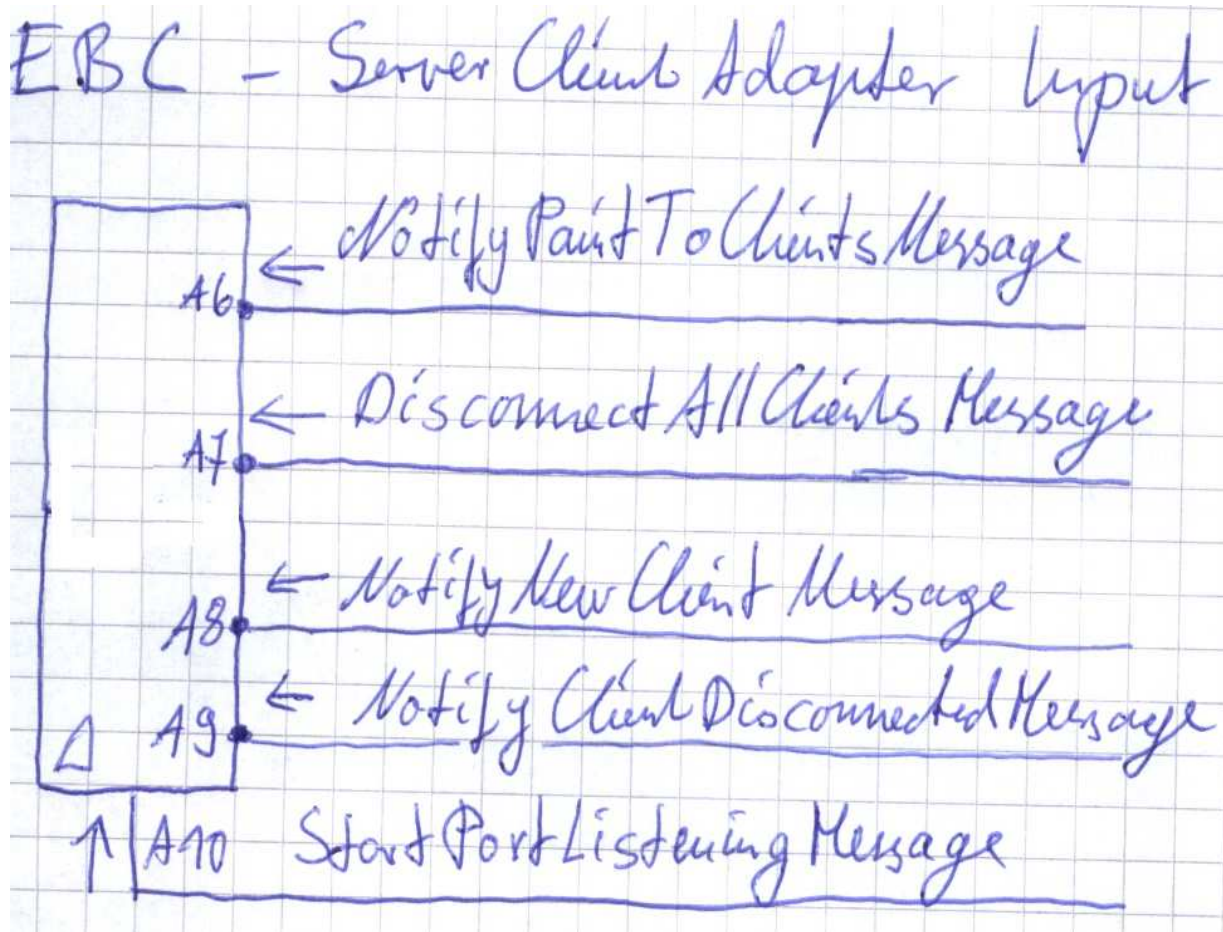 EBC - Server Client Adapter Input
← Notify Paint To Clients Message
A6
← Disconnect All Clients Message
A7
← Notify New Client Message
A8
← Notify Client Disconnected Message
A9
↑ A10 Start Port Listening Message